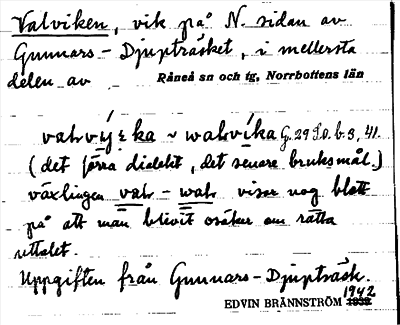 Valviken, vik på N. sidan av
Gunnars-Djupträsket, i mellersta
delen av Råneå sn och tg, Norrbottens län
vahvý:ka ~ wahvíka G. 29 S.O. b. 3, 41.
(det förra dialekt, det senare bruksmål.)
växlingen vah - wah visar nog blott
på att man blivit osäker om rätta
uttalet.
Uppgiften från Gunnars-Djupträsk.
EDVIN BRÄNNSTRÖM 1942